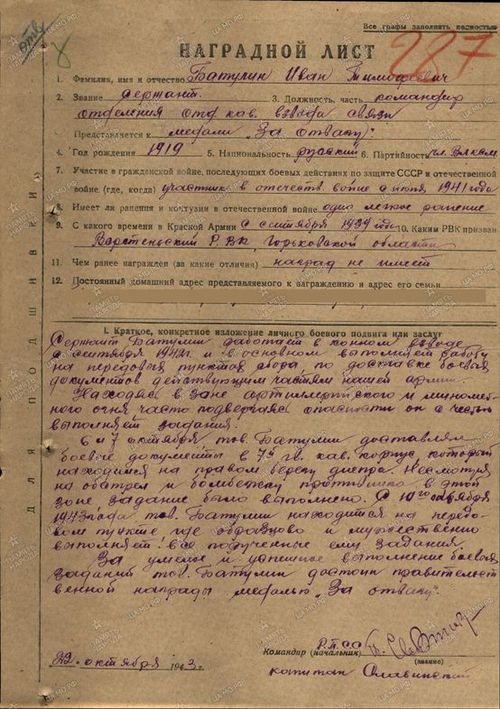 Все графы заполнять полностью
отв
8
287
НАГРАДНОЙ ЛИСТ
1. Фамилия, имя и отчество Батулин Иван Тимофеевич
2. Звание сержант 3. Должность, часть командир
отделения отд кав. взвода связи
Представляется к медали "За отвагу"
4. Год рождения 1919 5. Национальность русский 6. Партийность чл. ВЛКСМ
7. Участие в гражданской войне, последующих боевых действиях по защите СССР и отечественной
войне (где, когда) участник в отечеств войне с июня 1941 года
8. Имеет ли ранения и контузии в отечественной войне одно легкое ранение
9. С какого времени в Красной Армии с сентября 1939 года 10. Каким РВК призван
РВК Горьковской области
11. Чем ранее награжден (за какие отличия) наград не имеет
12. Постоянный домашний адрес представляемого к награждению и адрес его семьи
Для подшивки
I. Краткое, конкретное изложение личного боевого подвига или заслуг
Сержант Батулин работает в конном взводе
с сентября 1942г. и в основном выполняет работу
на передовых пунктах сбора по доставке боевых
документов действующим частям нашей армии.
Находясь в зоне артиллерийского и миномет-
ного огня, часто подвергаясь опасности он с честью
выполняет задания.
6 и 7 октября тов. Батулин доставлял
боевые документы в 7й гв. кав. корпус, который
находился на правом берегу днепра. Несмотря
на обстрел и бомбежку противника в этой
зоне, задание было выполнено. С 10го октября
1943 года тов. Батулин находится на передо-
вом пункте где образцово и мужественно
выполняет все порученные ему задания
За умелое и успешное выполнение боевых
заданий тов. Батулин достоин правительст-
венной награды медалью "За отвагу".
Командир (начальник)
(звание)
22 октября 1943г.
капитан Славинский